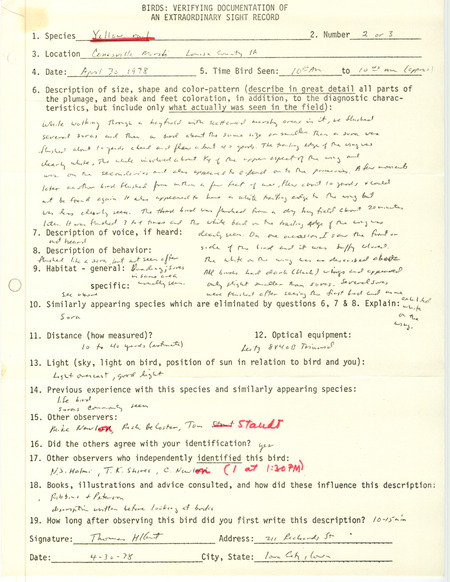 BIRDS: VERIFYING DOCUMENTATION OF
AN EXTRAORDINARY SIGHT RECORD
1. Species Yellow rail 2. Number 2 or 3
3. Location Conesville Marsh Louisa County IA
4. Date: April 30 1978 5. Time Bird Seen: 10 AM to 10:20 AM (approx)
6. Description of size, shape and color-pattern (describe in great detail all parts of
the plumage, and beak and feet coloration, in addition, to the diagnostic charac-
teristics, but include only what actually was seen in the field):
While walking through a hayfield with scattered marshy areas in it, we flushed
several soras and then a bird about the same size or smaller than a sora was
flushed about 10 yards and flew about 40 yards. The trailing edge of the wing was
clearly white. The white involved about 1/4 of the upper aspect of the wing and
was on the secondaries and also appeared to extend on to the primaries. A few moments
later another bird flushed from within a few feet of me, flew about 10 yards & could
not be found again. It also appeared to have a white trailing edge to the wing but
was less clearly seen. The third bird was flushed from a dry hay field about 20 minutes
later. It was flushed 3 to 4 times and the white band on the trailing edge of the wing was
7. Description of voice, if heard: clearly seen. On one occasion I saw the front or
not heard side of the bird and it was buffy colored.
8. Description of behavior: The white on the wing was as described above
flushed like a sora but not seen after
9. Habitat - general: Standing, soras All birds had dark (black) wings and appeared
in same area only slight smaller than soras. Several soras
specific: usually seen. were flushed after seeing the first bird and none
see above exhibited
10. Similarly appearing species which are eliminated by questions 6, 7 & 8. Explain: white
Sora on the
wing.
11. Distance (how measured)? 12. Optical equipment:
10 to 40 yards (estimate) Leitz 8x40B Trinovid
13. Light (sky, light on bird, position of sun in relation to bird and you):
Light overcast, good light
14. Previous experience with this species and similarly appearing species:
life bird
Soras commonly seen
15. Other observers:
Mike Newlon, Rich Tom Staudt
16. Did the others agree with your identification? yes
17. Other observers who independently identified this bird:
N.S. Halmi, T.K. Shires, C. Newlon (1 at 1:30 PM)
18. Books, illustrations and advice consulted, and how did these influence this description:
Robbins & Peterson
description written before looking at books
19. How long after observing this bird did you first write this description? 10-15 min
Signature: Thomas H Kent Address: 211 Richards St
Date: 4-30-78 City, State: Iowa City, Iowa